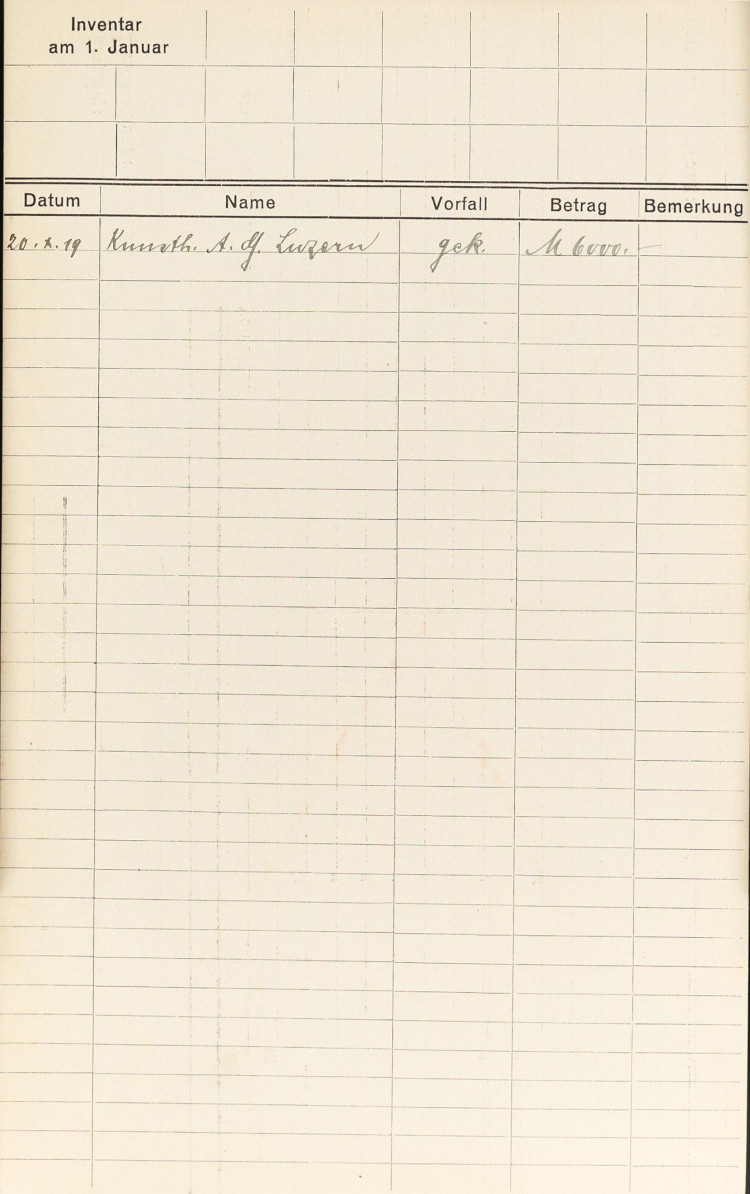 Inventar
am 1. Januar
Datum Name Vorfall Betrag Bemerkung
20.X.19 Kunsth. A.G. Luzern gek. M 6000.—